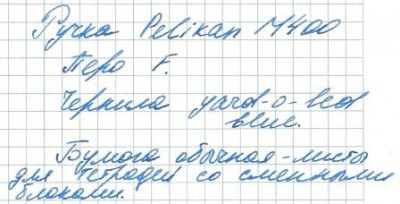 Ручка Pelikan M400
Перо F.
Чернила yard-o-led
blue.
Бумага обычная - листы
для тетрадей со сменными
блоками.